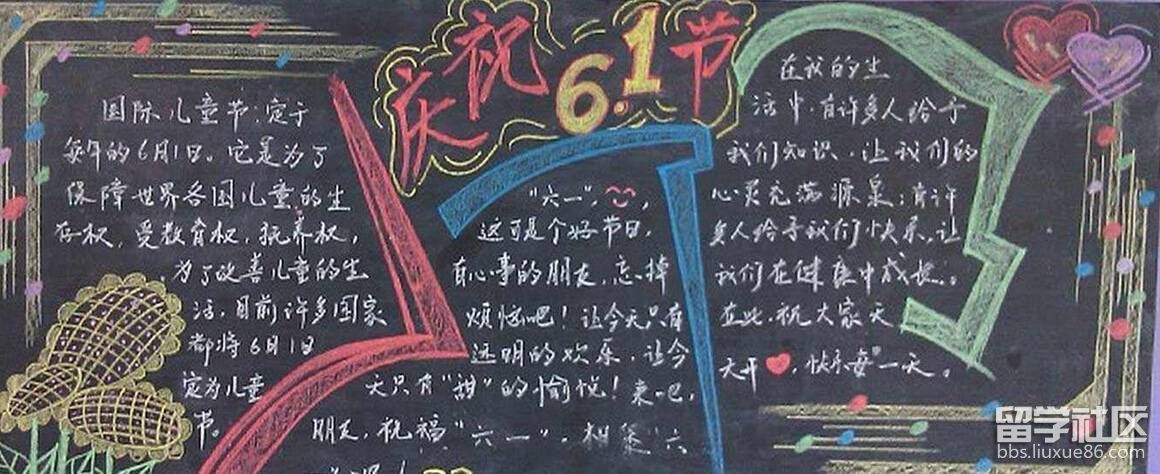 庆祝6.1节
国际儿童节:定于
每年的6月1日。它是为了
保障世界各国儿童的生
存权,受教育权,抚养权,
为了改善儿童的生
活,目前许多国家
都将6月1日
定为儿童
节。
"六一",
这可是个好节日,
有心事的朋友,忘掉
烦恼吧!让今天只有
透明的欢乐,让今
天只有"甜"的愉悦!来吧,
朋友,祝福"六一",相聚"六
在我的生
活中,有许多人给予
我们知识,让我们的
心灵充满源泉;有许
多人给予我们快乐,让
我们在健康中成长。
在此,祝大家天
天开,快乐每一天。
留学社区
bbs.liuxue86.com